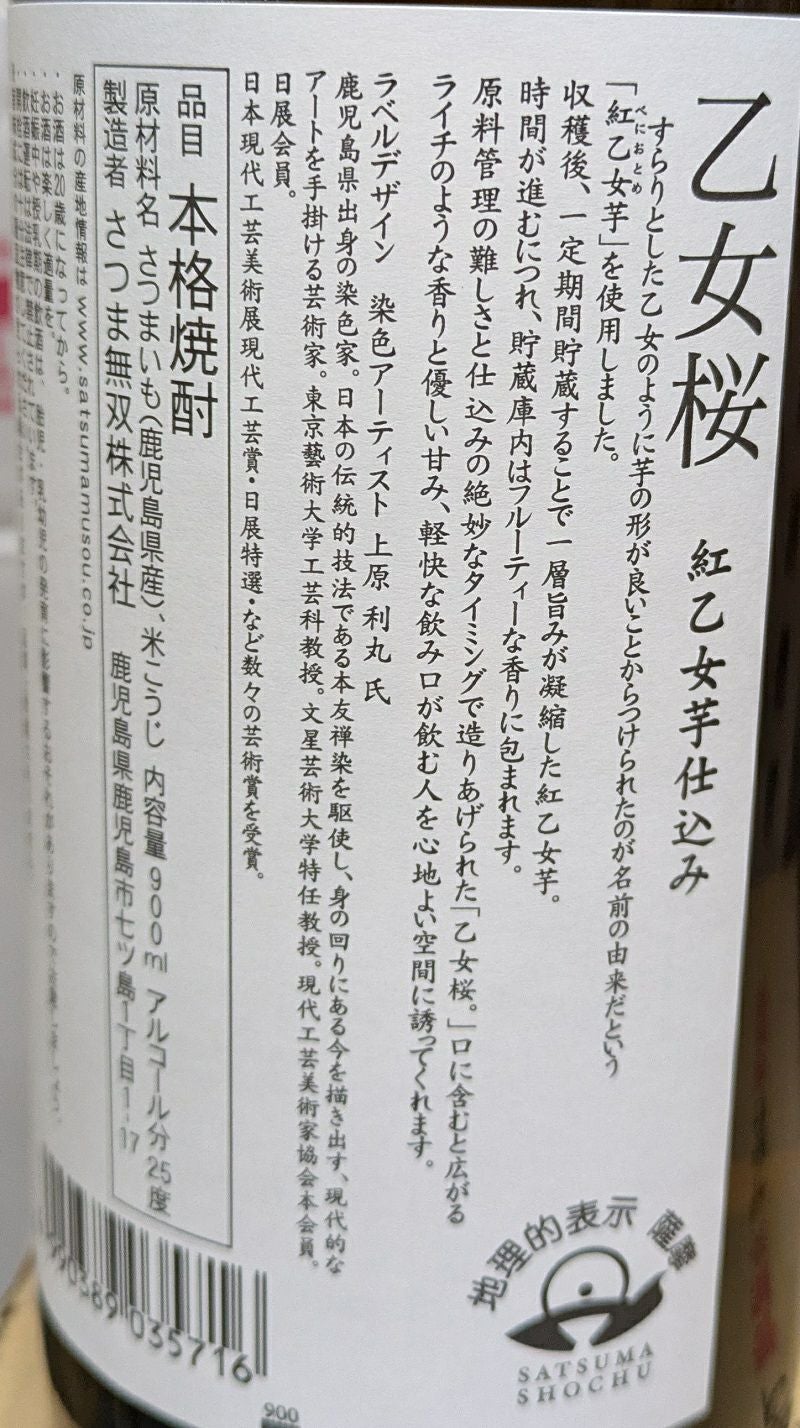 乙女桜 紅乙女芋仕込み
すらりとした乙女のように芋の形が良いことからつけられたのが名前の由来だという
「紅乙女芋」を使用しました。
べにおとめ
収穫後、一定期間貯蔵することで一層旨みが凝縮した紅乙女芋。
時間が進むにつれ、貯蔵庫内はフルーティーな香りに包まれます。
原料管理の難しさと仕込みの絶妙なタイミングで造りあげられた「乙女桜。」口に含むと広がる
ライチのような香りと優しい甘み、軽快な飲み口が飲む人を心地よい空間に誘ってくれます。
ラベルデザイン 染色アーティスト 上原 利丸 氏
鹿児島県出身の染色家。日本の伝統的技法である本友禅染を駆使し、身の回りにある今を描き出す、現代的な
アートを手掛ける芸術家。東京藝術大学工芸科教授。文星芸術大学特任教授。現代工芸美術家協会本会員。
日展会員。
日本現代工芸美術展現代工芸賞・日展特選・など数々の芸術賞を受賞。
品目 本格焼酎
原材料名 さつまいも(鹿児島県産)、米こうじ 内容量 900ml アルコール分 25度
製造者 さつま無双株式会社 鹿児島県鹿児島市七ツ島1丁目1-17
原材料の産地情報は www.satsumamusou.co.jp
・お酒は20歳になってから。
・お酒は楽しく適量を。
・妊娠中や授乳期の飲酒は、胎児・乳幼児の発育に影響するおそれがあります
・飲酒運転は法律で禁止されて
地理的表示 薩摩
SATSUMA
SHOCHU
990389 035716
900